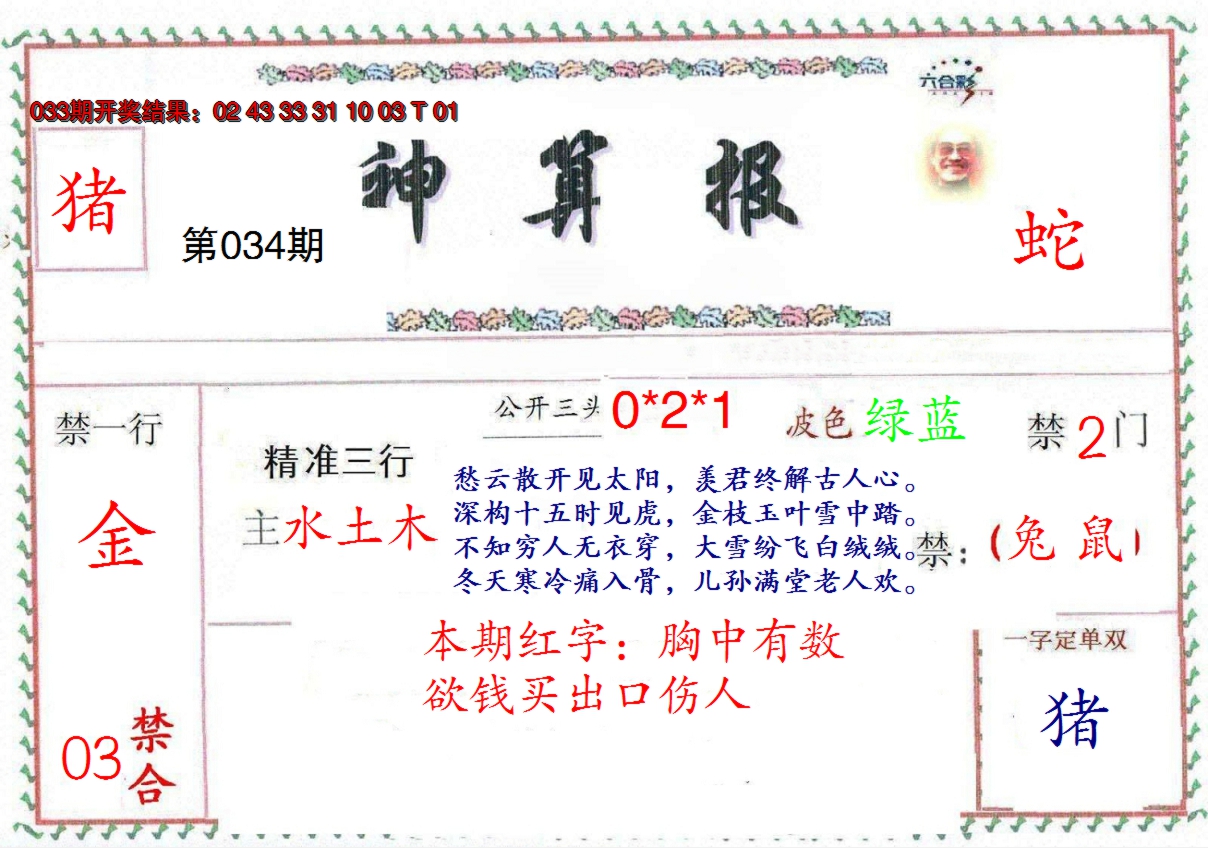 六合彩
033期开奖结果：02 43 33 31 10 03 T 01
神算报
猪
第034期
蛇
禁一行
金
03禁合
精准三行
主水土木
公开三头 0*2*1
波色 绿蓝
禁2门
禁：(兔 鼠)
愁云散开见太阳，羡君终解古人心。
深构十五时见虎，金枝玉叶雪中踏。
不知穷人无衣穿，大雪纷飞白绒绒。
冬天寒冷痛入骨，儿孙满堂老人欢。
本期红字：胸中有数
欲钱买出口伤人
一字定单双
猪